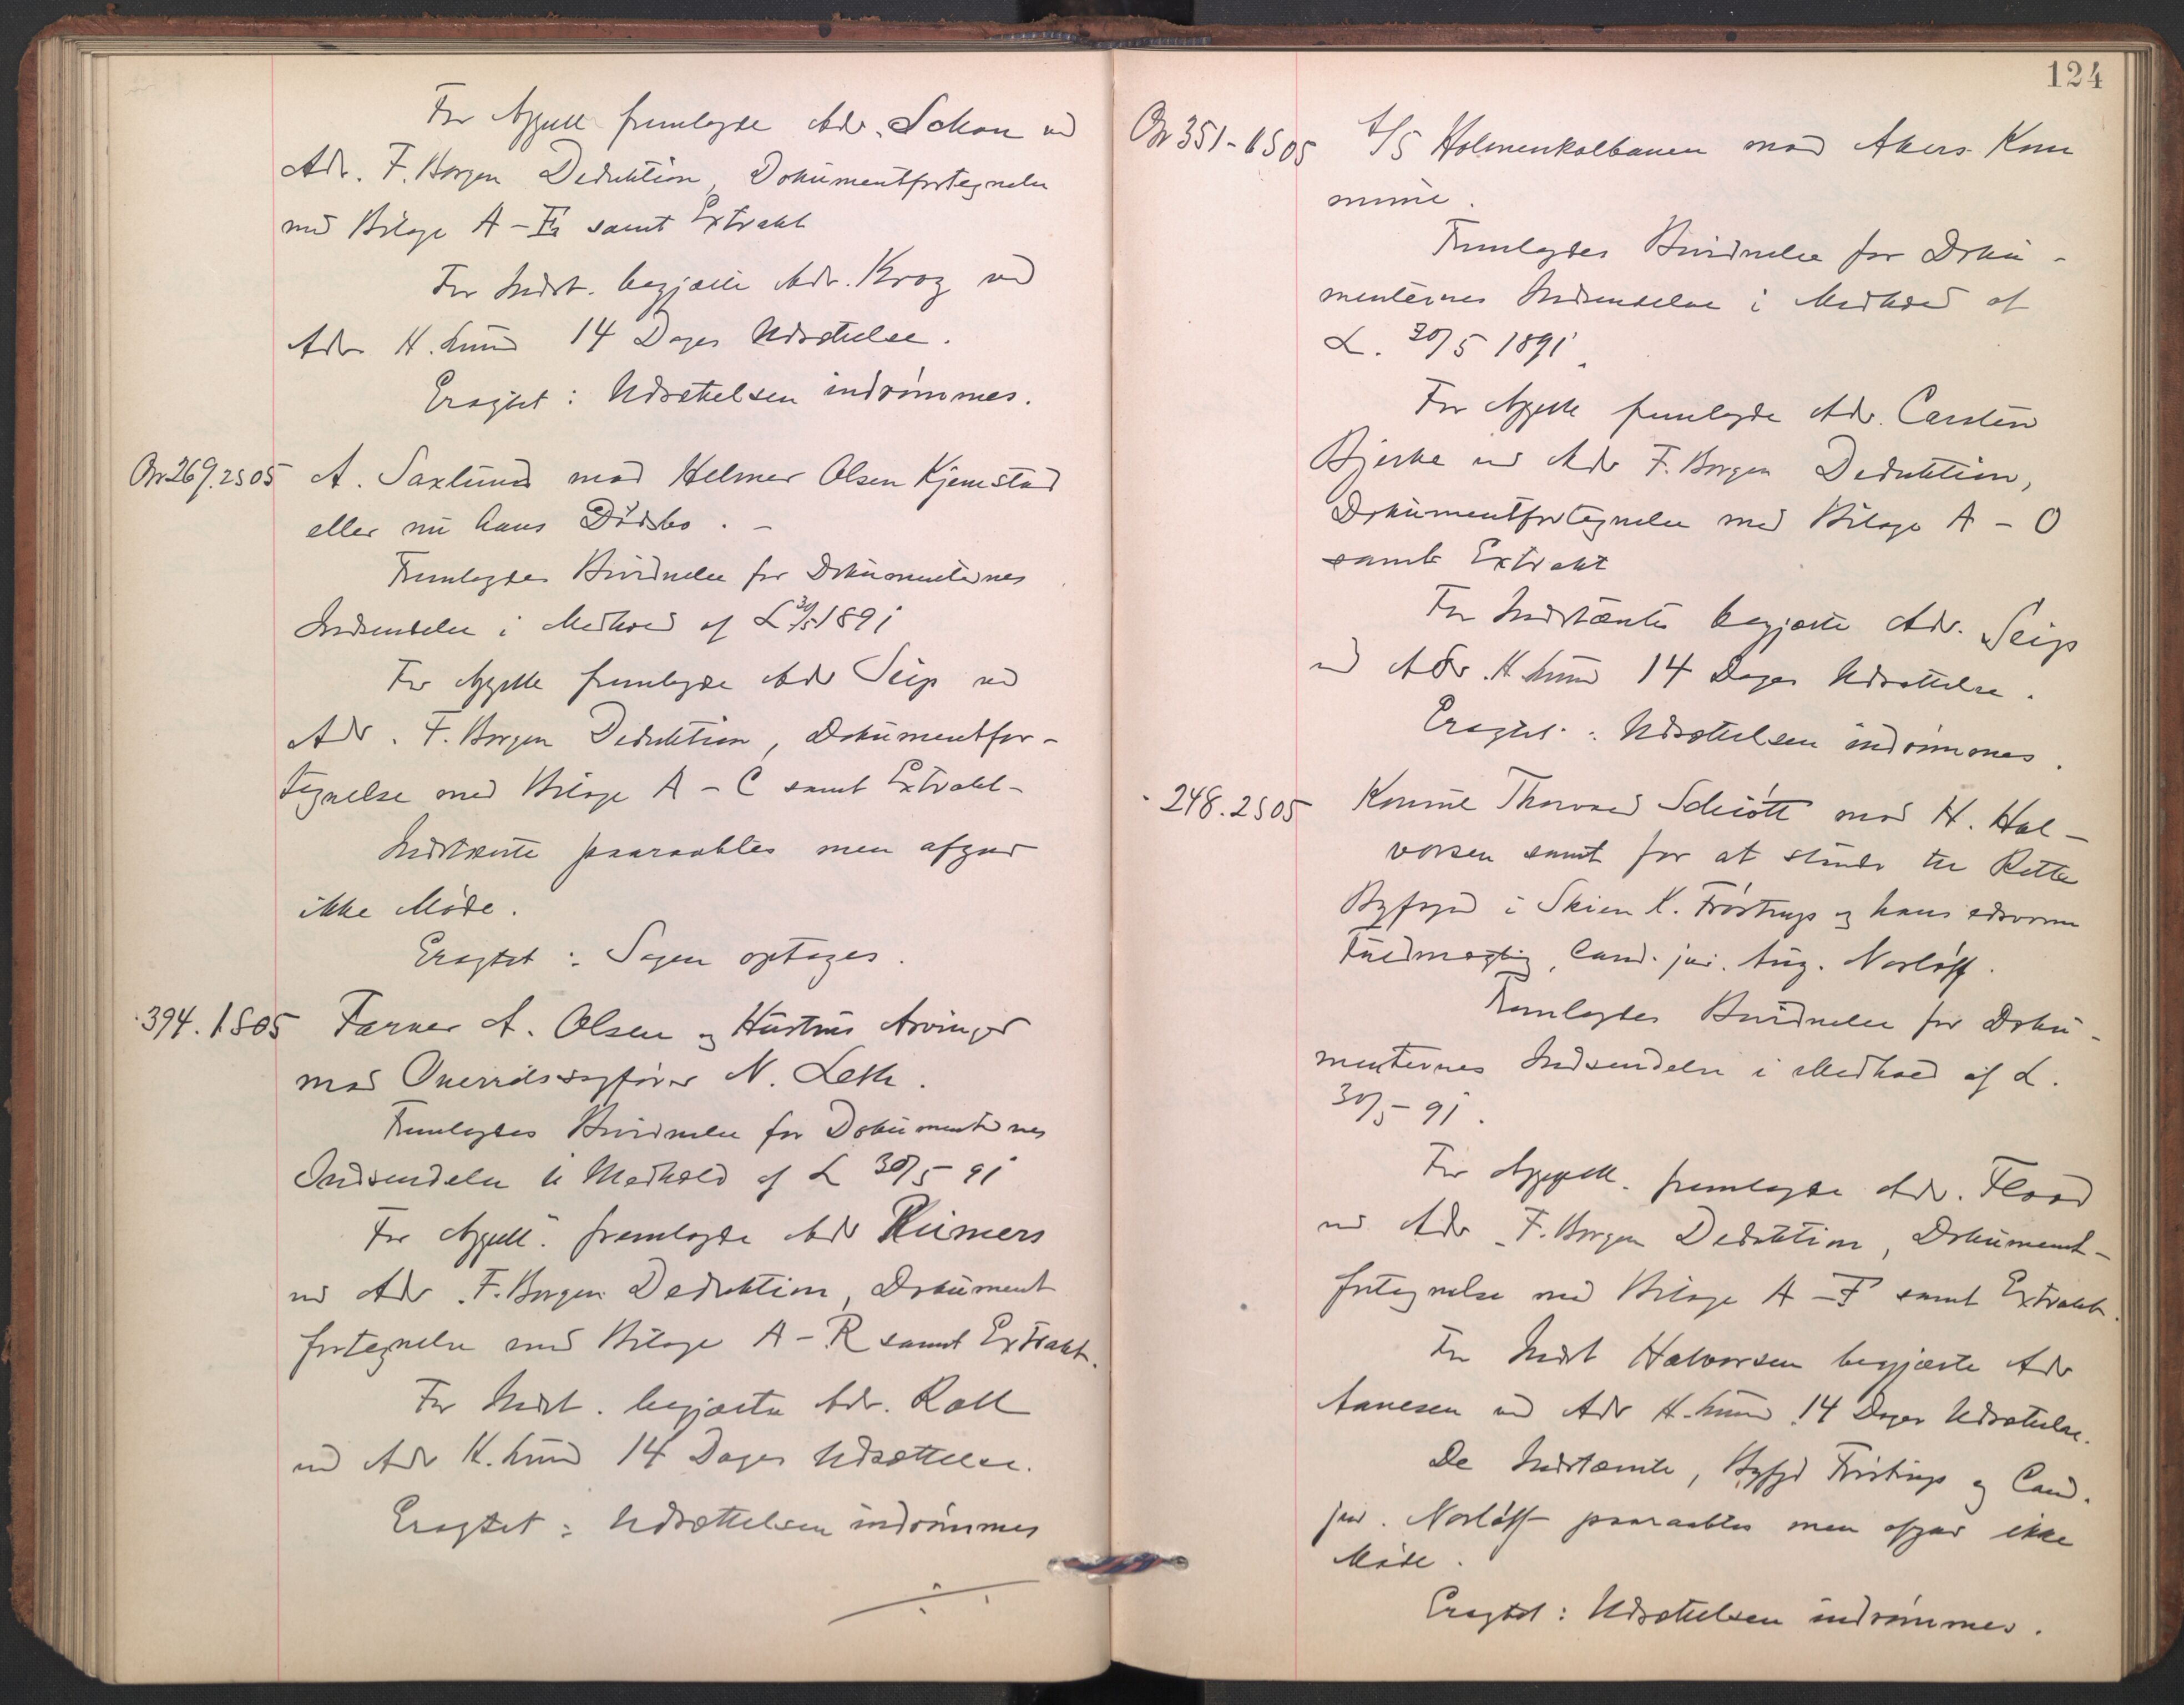 For Appell fremlagde Adv. Schou ved
Adv. F. Borgen Deduktion, Dokumentfortegnelse
med Bilage A-E samt Extrakt
For Indst. begjærte Adv. Krog ved
Adv H. Lund 14 Dages Udsættelse.
Eragtet: Udsættelsen indrömmes.
No 269. 2S05 A. Saxlund mod Helmer Olsen Kjemstad
eller nu hans Dödsbo. -
Fremlagdes Bevidnelse for Dokumenternes
Indsendelse i Medhold af L 30/5 1891
For Appelle fremlagde Adv Seip ved
Adv. F. Borgen Deduktion, Dokumentfor-
tegnelse med Bilage A-C samt Extrakt-
Indstevnte paaraabtes men afgav
ikke Möde.
Eragtet: Sagen optages.
" 394. 1S05 Farver A. Olsen og Hustrus Arvinger
mod Overretssagförer N. Leth.
Fremlagdes Bevidnelse for Dokumenternes
Indsendelse i Medhold af L 30/5 91
For Appell. fremlagde Adv Reimers
ved Adv. F. Borgen Deduktion, Dokument
fortegnelse med Bilage A-R samt Extrakt.
For Indst. begjærte Adv. Roll
ved Adv H. Lund 14 Dages Udsættelse.
Eragtet: Udsættelsen indrömmes
124
No 351-1S05 A/S Holmenkolbanen mod Akers Kom
mune.
Fremlagdes Bevidnelse for Doku-
menternes Indsendelse i Medhold af
L. 30/5 1891.
For Appelle fremlagde Adv. Carsten
Bjerke ved Adv F. Borgen Deduktion,
Dokumentfortegnelse med Bilage A-O
samt Extrakt
For Indstævnte begjærte Adv. Seip
ved Adv. H. Lund 14 Dages Udsættelse.
Eragtet: Udsættelsen indrömmes.
" 248. 2S05 Thorvald Schiött mod H. Hal-
vorsen samt for at stande til Rette
Byfogd i Skien K. Fröstrup og hans edsvorne
Fuldmægtig, Cand. jur. Aug. Norlöff.
Fremlagdes Bevidnelse for Doku-
menternes Indsendelse i Medhold af L.
30/5-91.
For Appell. fremlagde Adv. Flood
ved Adv F. Borgen Deduktion, Dokument-
fortegnelse med Bilage A-F samt Extrakt.
For Indst Halvorsen begjærte Adv
Aanesen ved Adv H. Lund 14 Dages Udsættelse.
De Indstævnte, Byfgd Fröstrup og Cand.
jur. Norlöff paaraabtes men afgav ikke
Möde.
Eragtet: Udsættelsen indrömmes.